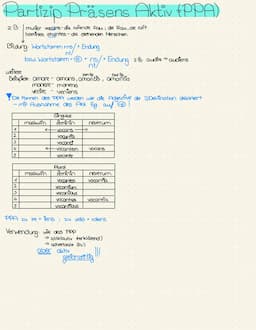 Partizip Präsens Aktiv (PPA)
z.B. mulier vocans - die rufende Frau, die Frau, die ruft
homines stantes - die stehenden Menschen
Bildung: Wortstamm + ns/ + Endung
nt/
bzw. Wortstamm + e + ns/ + Endung z.B. audire → audiens
nt/
weitere
Beispiele: amare - amans, amantis, amantis
monere - monens
venire - veniens
Die Formen des PPA werden wie die Adjektive der 3. Deklination dekliniert
→ mit Ausnahme des Abl. Sg. auf
Singular
maskulin feminin neutrum
1 vocans
2 vocantis
3 vocanti
4 vocantem vocans
5 vocante
Plural
maskulin feminin neutrum
1 vocantes vocantia
2 vocantium
3 vocantibus
4 vocantes vocantia
5 vocantibus
PPA zu ire = iens; zu
Verwendung: wie das PPP
oder aktiv
gleichzeitig!!!